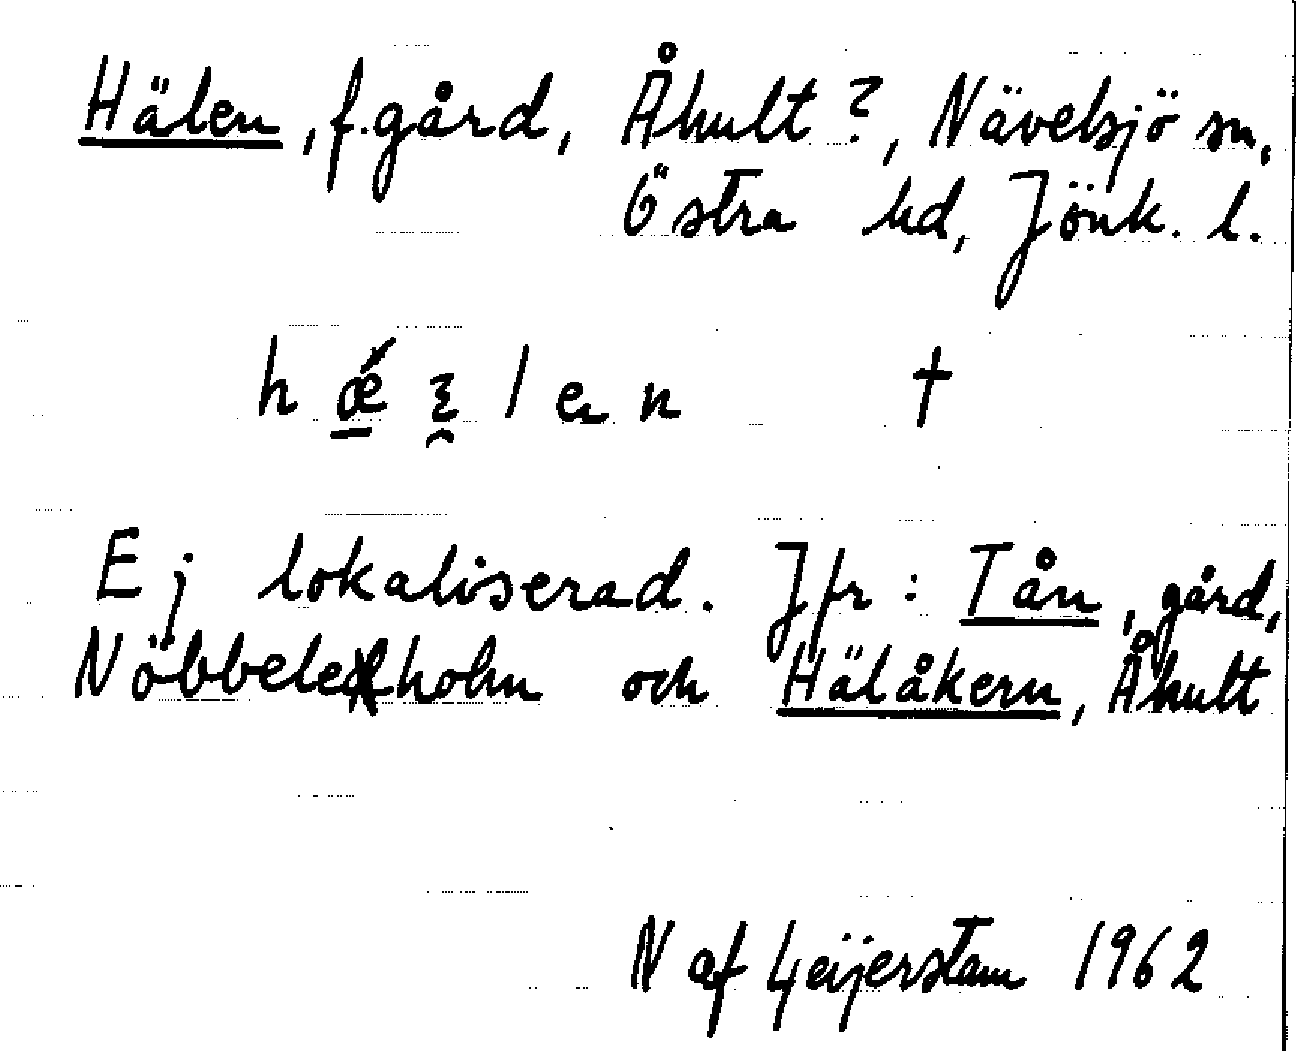 Hälen, f.gård, Åhult?, Nävelsjö sn,
Östra hd, Jönk. l.
†
Ej lokaliserad. Jfr: Tån, gård,
Nöbbeleholm och Hälåkern, Åhult
N af Geijerstam 1962